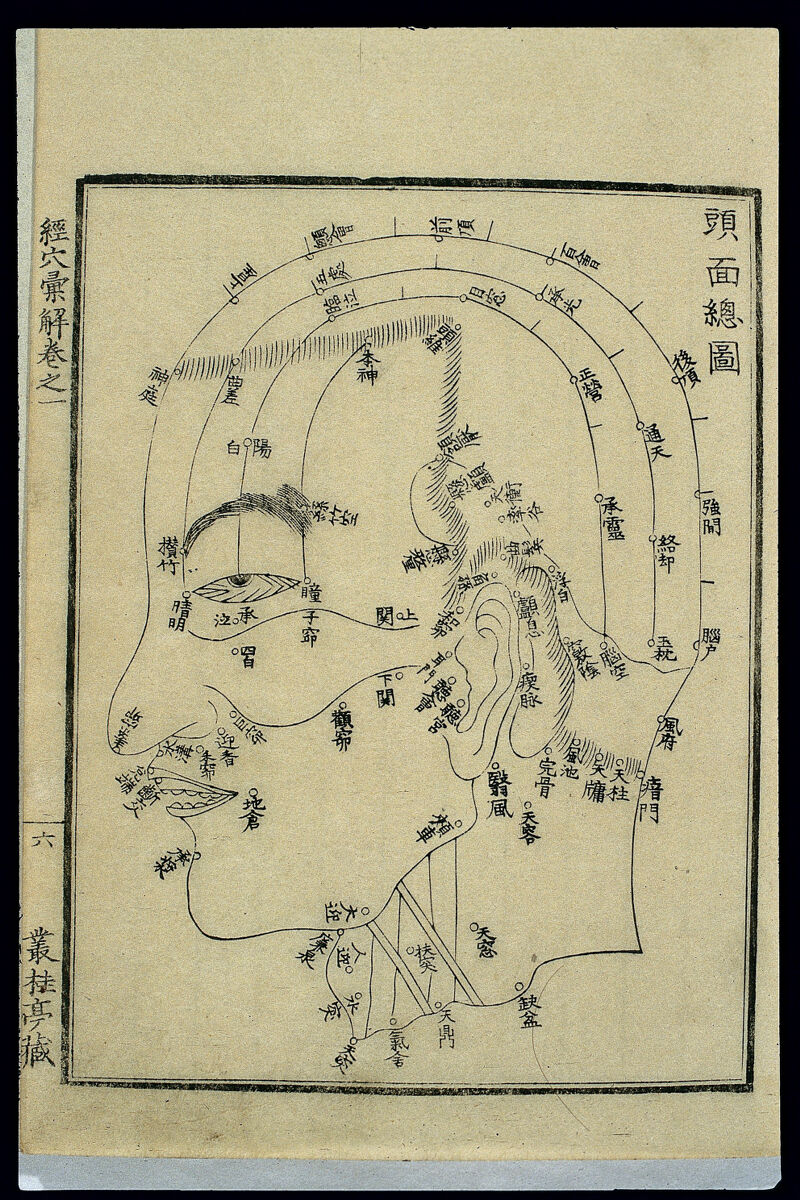 頭面總圖
經穴彙解卷之一
六
叢桂亭藏
前頂
顖會
上星
神庭
百會
後頂
強間
腦戶
風府
瘖門
五處
承光
通天
絡却
玉枕
曲差
臨泣
目窓
正營
承靈
腦空
本神
頭維
陽白
攅竹
絲竹空
晴明
瞳子窌
承泣
四白
頷厭
懸顱
懸釐
天衝
率谷
曲鬢
浮白
角孫
顱息
竅陰
瘈脉
上関
下関
和窌
耳門
聽會
聽宮
顴窌
素窌
水溝
禾窌
迎香
巨窌
兌端
齗交
地倉
承漿
頰車
大迎
翳風
完骨
風池
天牖
天柱
天容
廉泉
人迎
水突
天突
氣舍
扶突
天鼎
天窓
缺盆